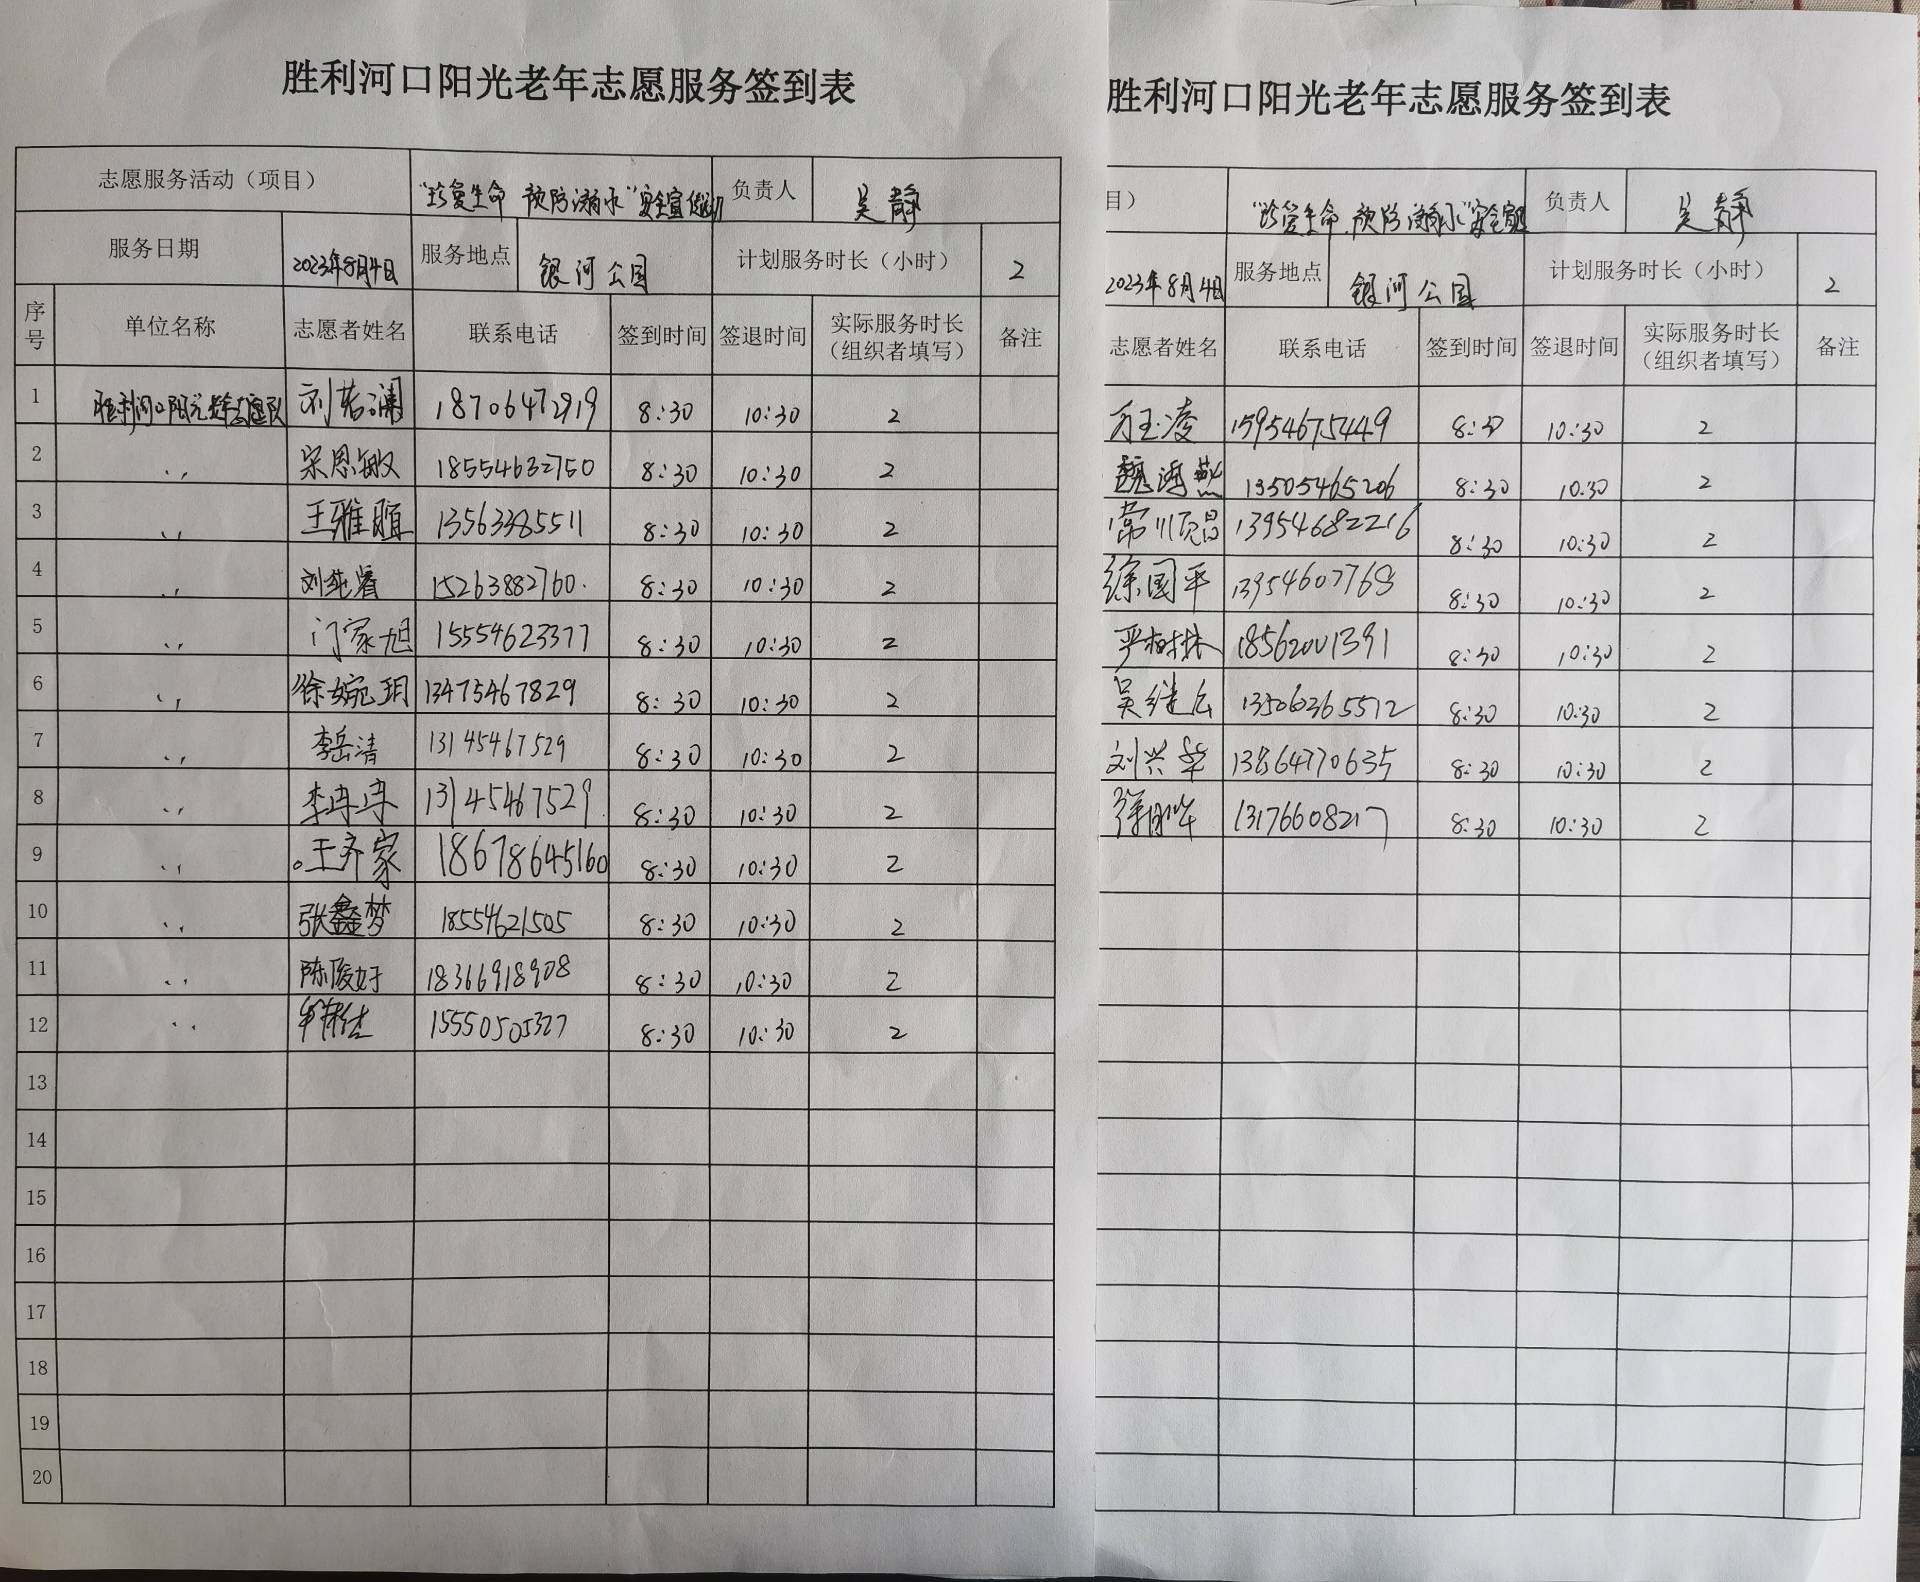 胜利河口阳光老年志愿服务签到表
志愿服务活动（项目） "珍爱生命 预防溺水"安全宣传活动 负责人 吴静
服务日期 2023年8月4日 服务地点 银河公园 计划服务时长（小时） 2
序号 单位名称 志愿者姓名 联系电话 签到时间 签退时间 实际服务时长（组织者填写） 备注
1 胜利河口阳光老年志愿队 刘若澜 18706472919 8:30 10:30 2
2 〃 宋思敏 18554632750 8:30 10:30 2
3 〃 王雅颐 13563385511 8:30 10:30 2
4 〃 刘纯睿 15263882760 8:30 10:30 2
5 〃 门家旭 15554623377 8:30 10:30 2
6 〃 徐婉玥 13475467829 8:30 10:30 2
7 〃 李岳清 13145467529 8:30 10:30 2
8 〃 李冉冉 13145467529 8:30 10:30 2
9 〃 王齐家 18678645160 8:30 10:30 2
10 〃 张鑫梦 18554621505 8:30 10:30 2
11 〃 陈俊好 18366918908 8:30 10:30 2
12 〃 15550505327 8:30 10:30 2
13
14
15
16
17
18
19
20
胜利河口阳光老年志愿服务签到表
目） "珍爱生命，预防溺水"安全 负责人 吴静
2023年8月4日 服务地点 银河公园 计划服务时长（小时） 2
志愿者姓名 联系电话 签到时间 签退时间 实际服务时长（组织者填写） 备注
万玉凌 15954675449 8:30 10:30 2
魏海燕 13505465206 8:30 10:30 2
常顺昌 13954682216 8:30 10:30 2
徐国平 13954607768 8:30 10:30 2
严树林 18562001391 8:30 10:30 2
吴继云 13506365512 8:30 10:30 2
刘兴华 13864770635 8:30 10:30 2
13176608217 8:30 10:30 2